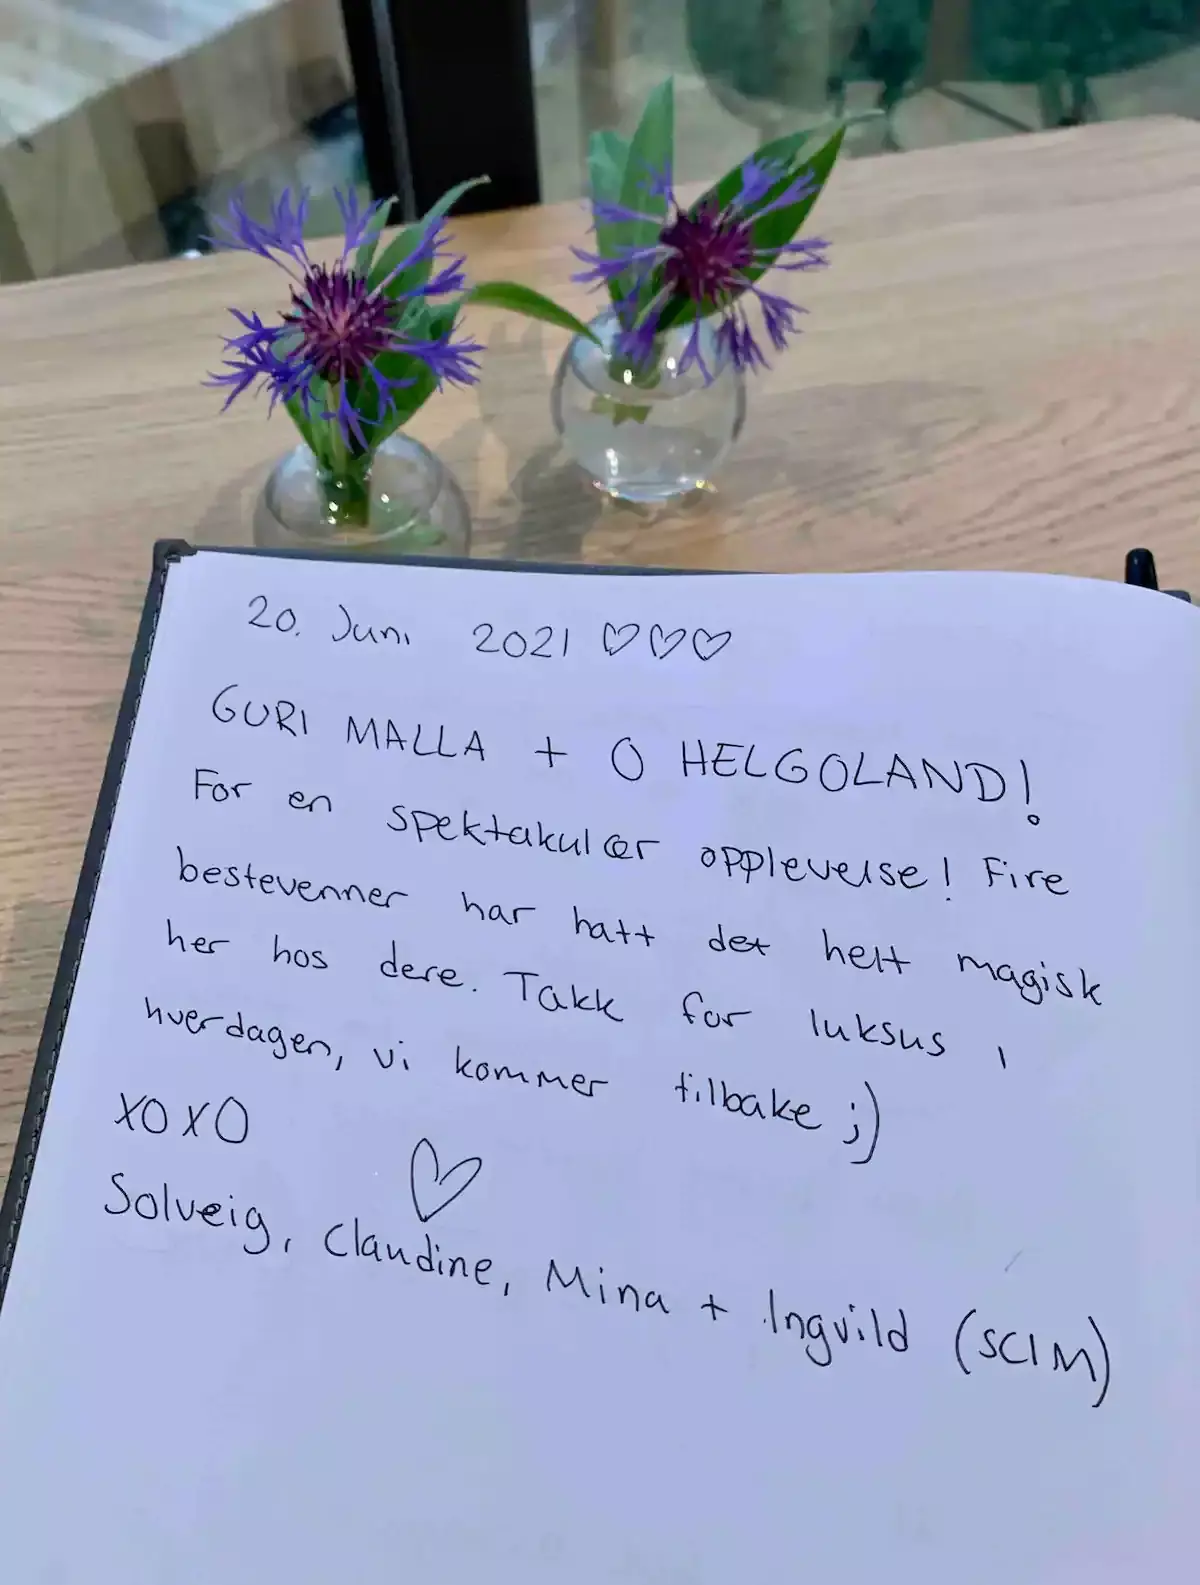 20. Juni 2021 ♡♡♡
GURI MALLA + O HELGOLAND!
For en spektakulær opplevelse! Fire
bestevenner har hatt det helt magisk
her hos dere. Takk for luksus i
hverdagen, vi kommer tilbake ;)
XOXO ♡
Solveig, Claudine, Mina + Ingvild (SCIM)